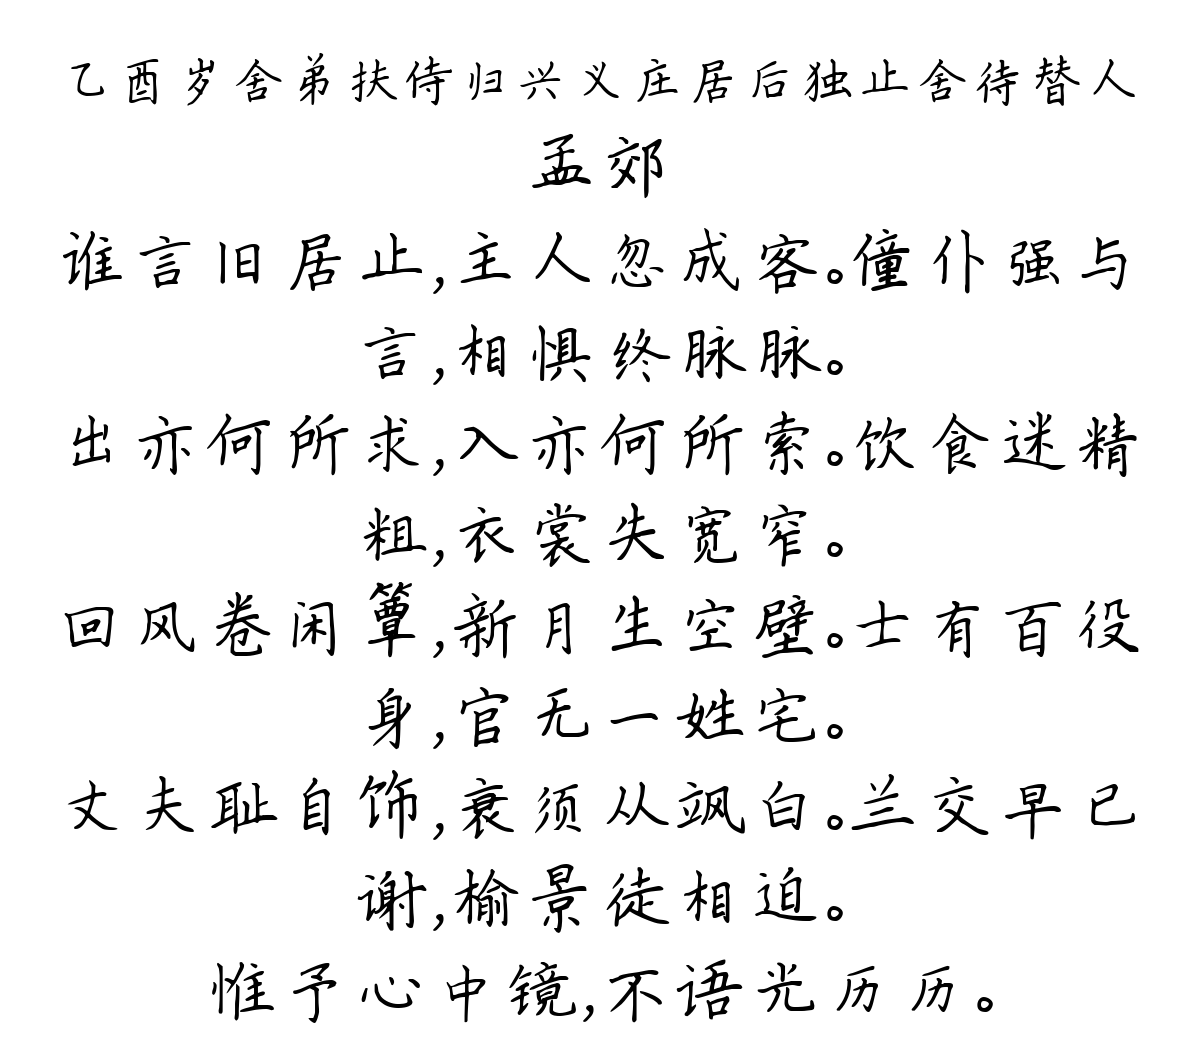 乙酉岁舍弟扶侍归兴义庄居后独止舍待替人
孟郊
谁言旧居止,主人忽成客。僮仆强与
言,相惧终脉脉。
出亦何所求,入亦何所索。饮食迷精
粗,衣裳失宽窄。
回风卷闲簟,新月生空壁。士有百役
身,官无一姓宅。
丈夫耻自饰,衰须从飒白。兰交早已
谢,榆景徒相迫。
惟予心中镜,不语光历历。